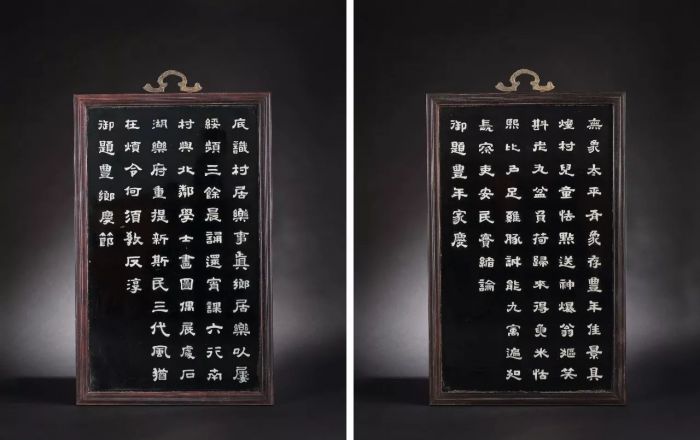 底識村居樂事真鄉居樂以屢
綏頻三餘晨誦還宵課六行南
村與北鄰學士畫圖偶展處石
湖樂府重提新斯民三代風猶
在煩令何須敎反淳
御題豐鄉慶節
無象太平有象存豐年佳景具
煌村兒童怯點送神爆翁嫗笑
斟老九盆負荷歸來得魚米怙
熙比戶足雞豚誠能九寓遍
長宛吏安民實綰論
御題豐年家慶